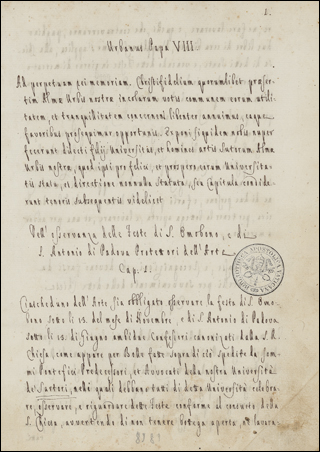 1.
Urbanus Papa VIII.
Ad perpetuam rei memoriam. Christifidelium quorumlibet præser-
tim Almæ Urbis nostræ incolarum votis communem eorum utili-
tatem, et tranquillitatem concernen. libenter annuimus, eaque
favoribus prosequimur opportunis. Exponi siquidem nobis nuper
fecerunt dilecti filij Universitatis, et homines artis Sutorum Almæ
Urbis nostræ, quod ipsi pro felici, et prospero eorum Universita-
tis statu, et directione nonnulla Statuta, seu Capitula condide-
runt tenoris subsequentis videlicet
Dell' osservanza delle Feste di S. Omobono, e di
S. Antonio di Padova Protettori dell' Arte
Cap. 1.
Ciascheduno dell' Arte, sia obbligato osservare la festa di S. Omo-
bono sotto li 13. del mese di Novembre, e di S. Antonio di Padova
sotto li 13. di Giugno ambidue Confessori canonizati dalla S. R.
Chiesa, come appare per Bolle fatte sopra di ciò spedite da Som-
mi Pontefici Predecessori, et Avvocati della nostra Università
de Sartori, nelli quali debbano tutti di detta Università celebra-
re, osservare, e riguardare dette Feste conforme al consueto della
S. Chiesa, avvertendo di non tenere bottega aperta, et lavora-